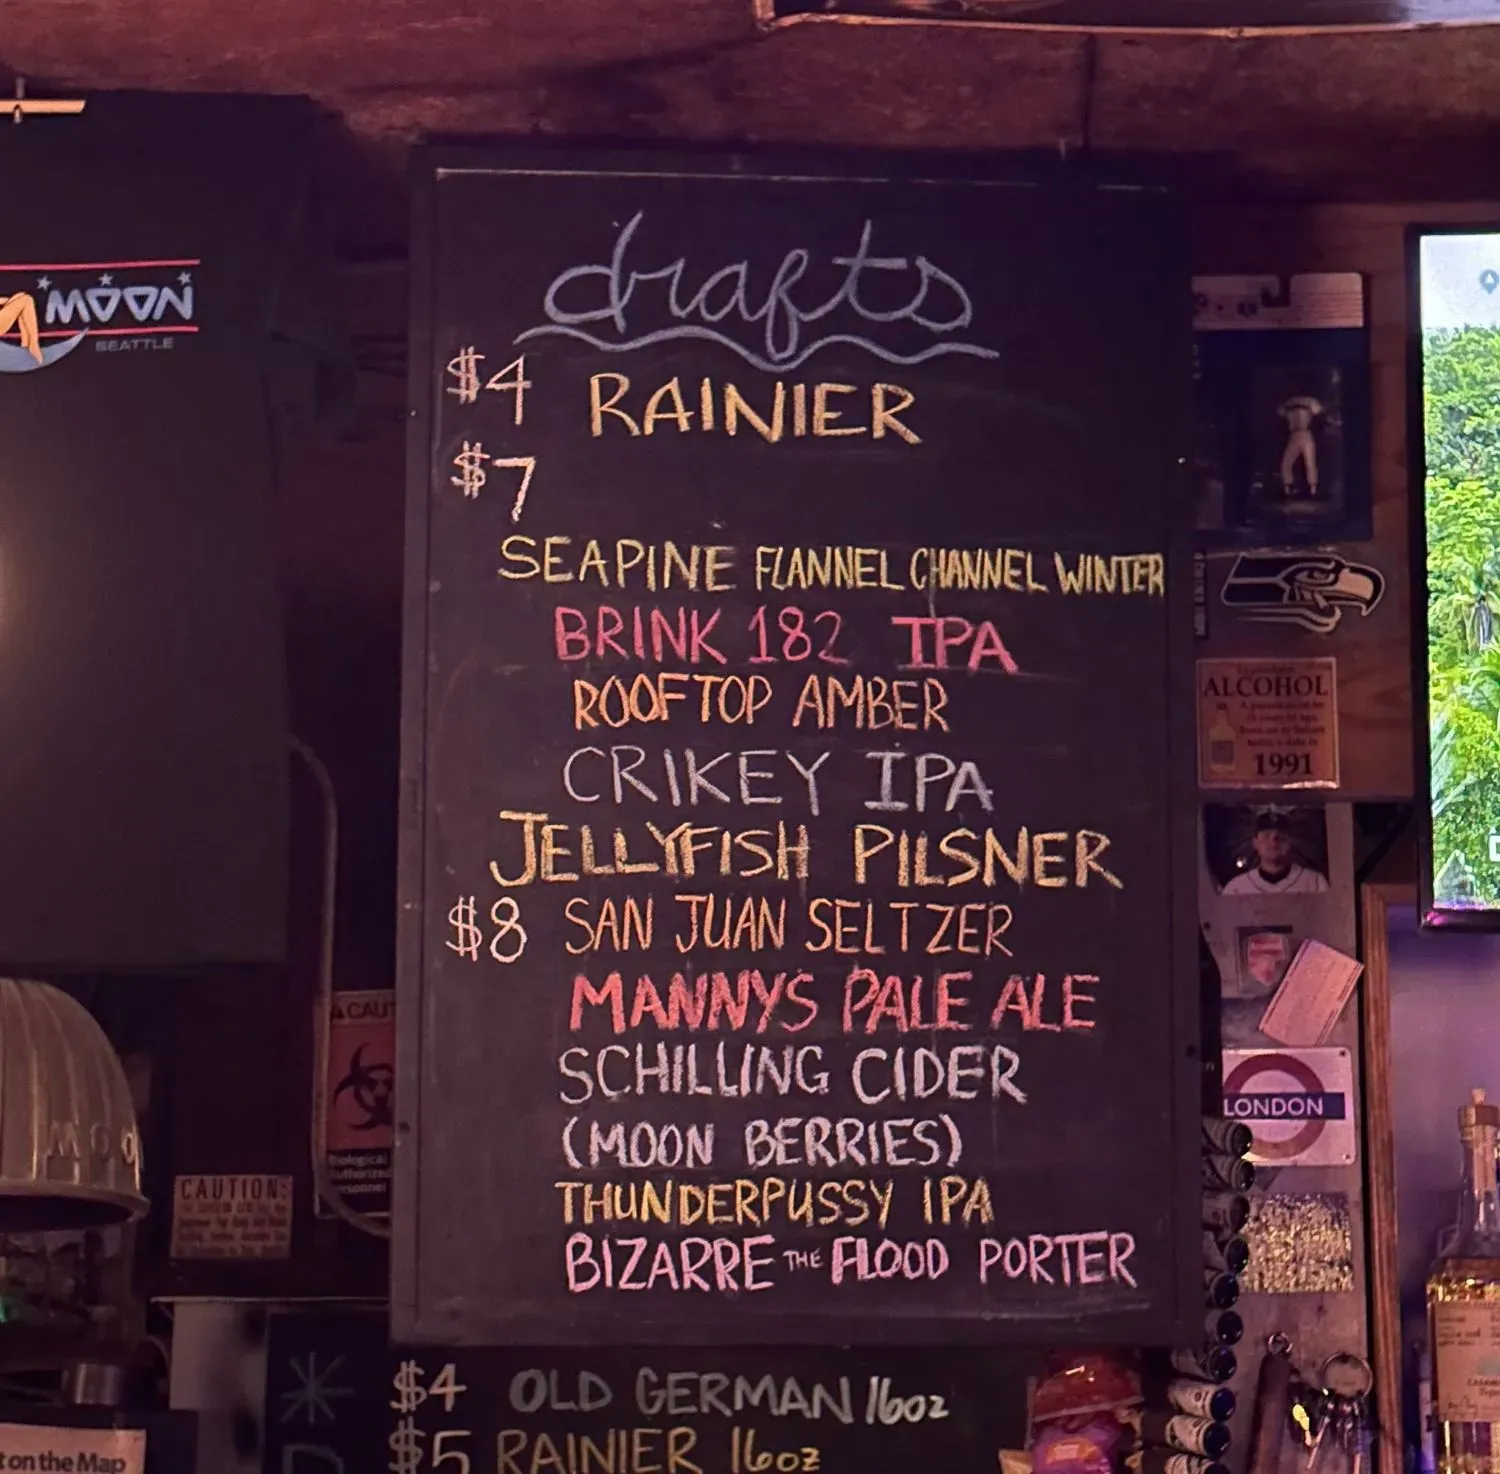 MOON
SEATTLE
drafts
$4 RAINIER
$7
SEAPINE FLANNEL CHANNEL WINTER
BRINK 182 IPA
ROOFTOP AMBER
CRIKEY IPA
JELLYFISH PILSNER
$8 SAN JUAN SELTZER
MANNYS PALE ALE
SCHILLING CIDER
(MOON BERRIES)
THUNDERPUSSY IPA
BIZARRE THE FLOOD PORTER
$4 OLD GERMAN 16oz
$5 RAINIER 16oz
ALCOHOL
1991
LONDON
CAUT
Biological
Authorized
Personnel
CAUTION
t on the Map